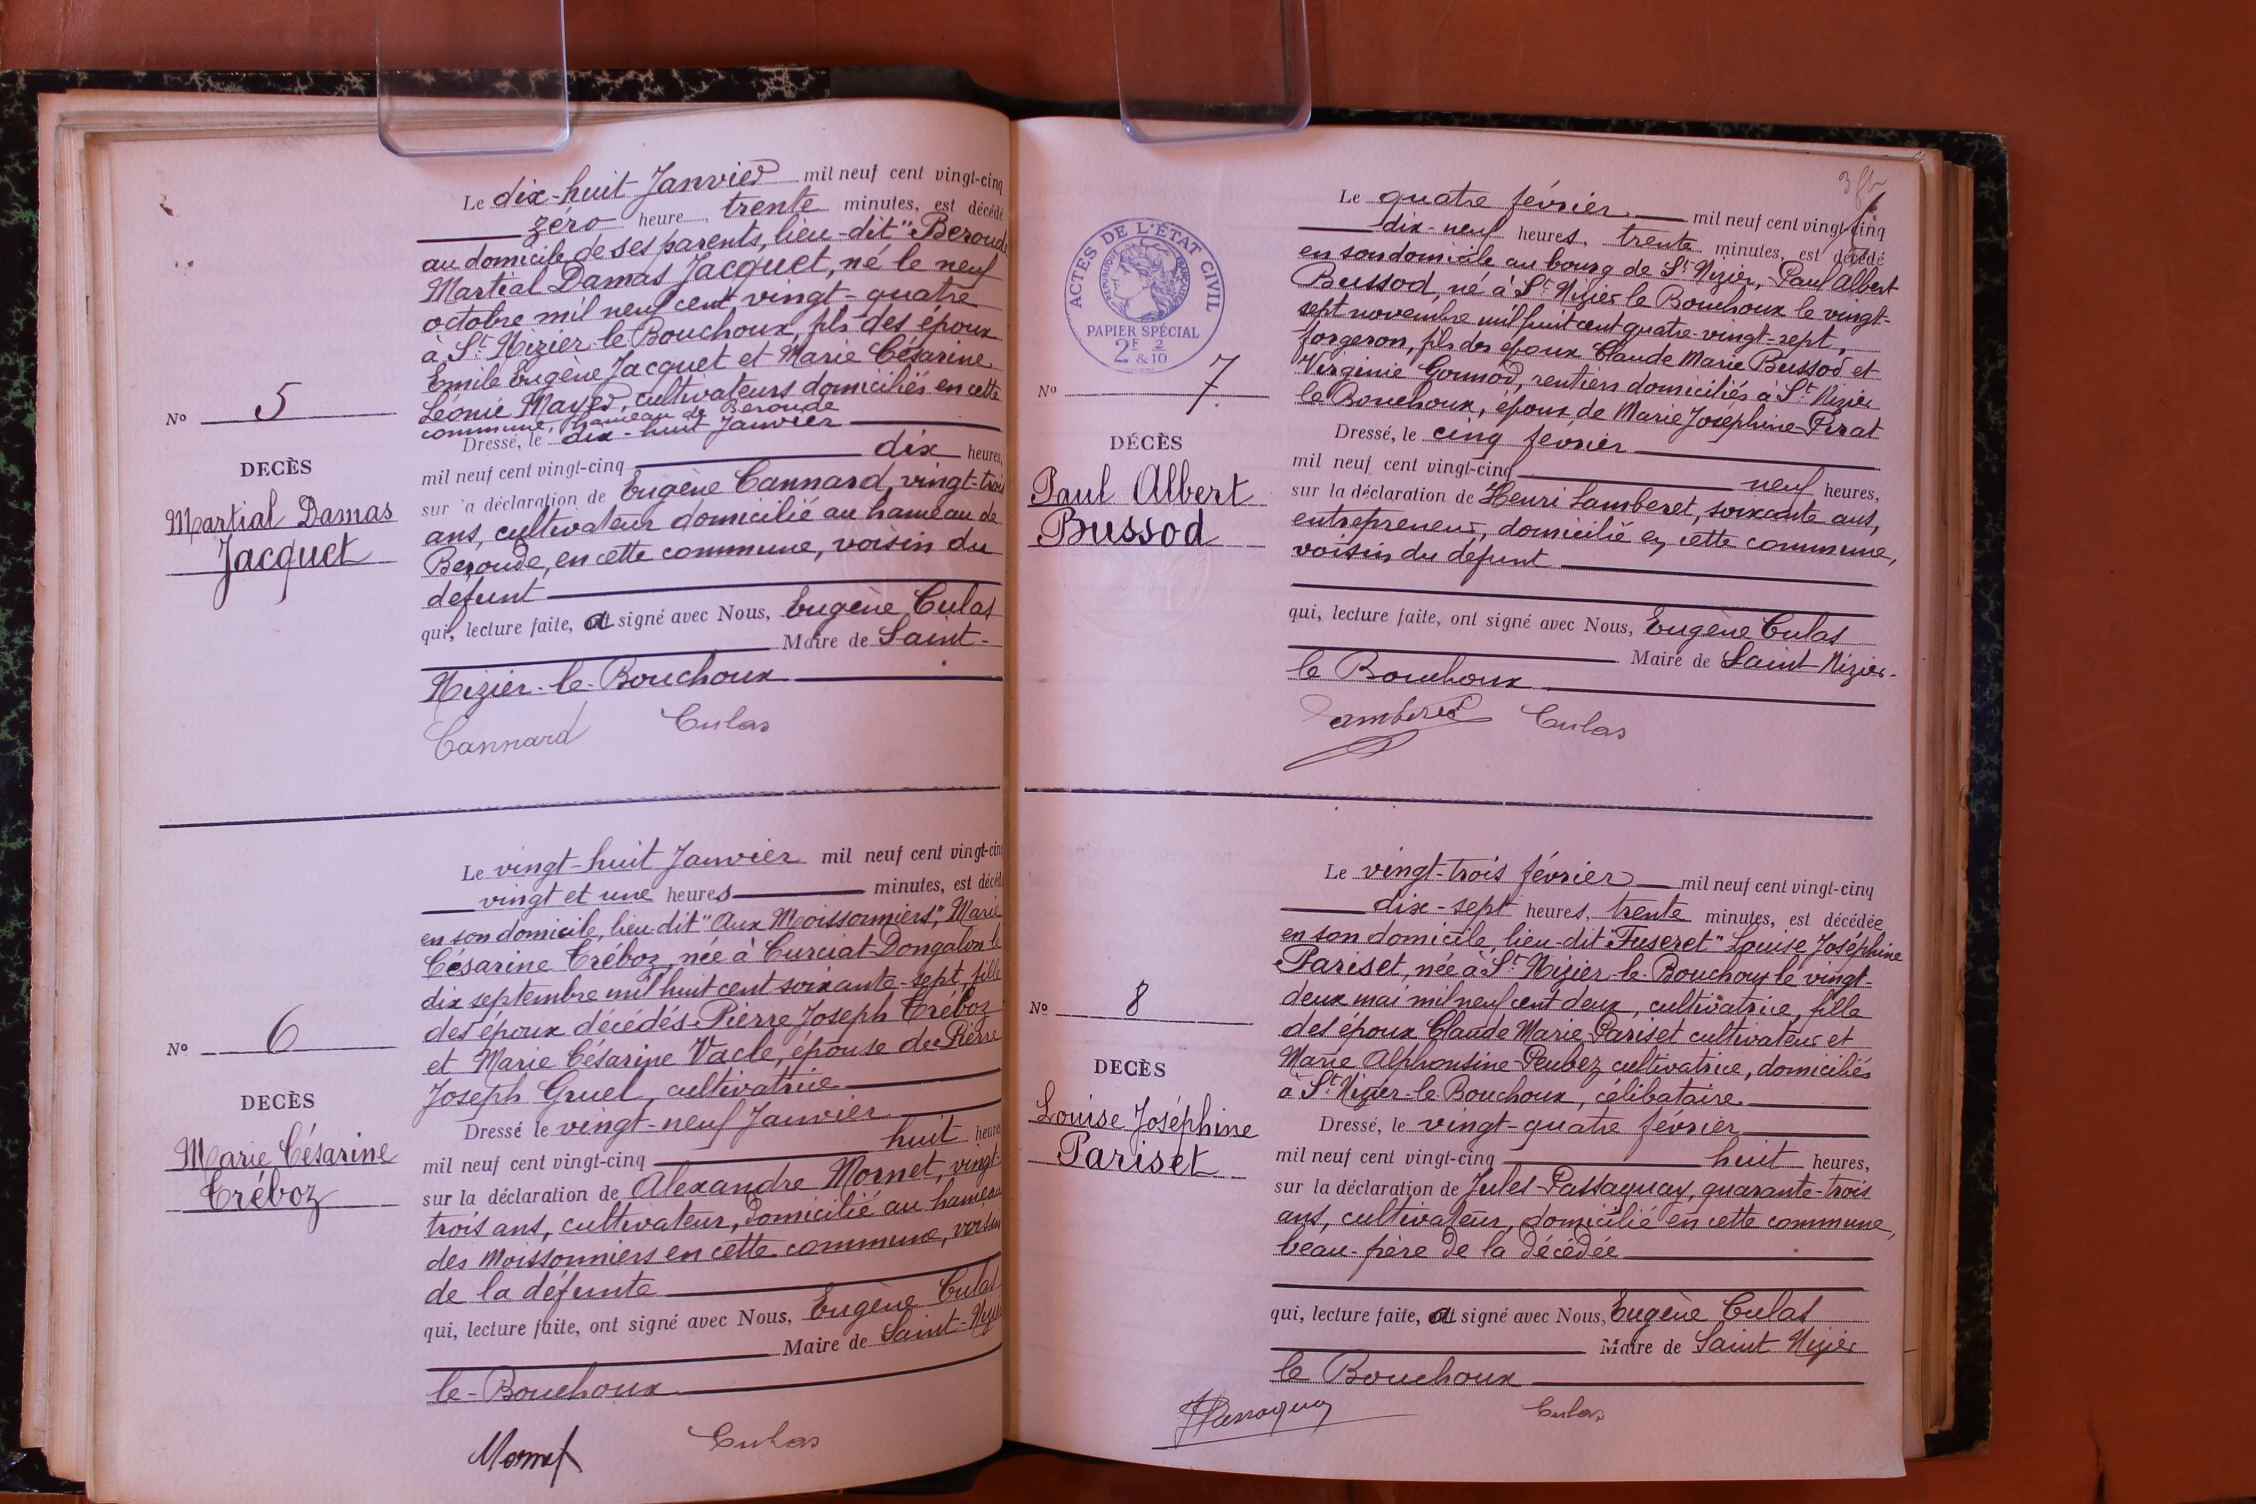 Le dix-huit Janvier mil neuf cent vingt-cinq
zéro heure, trente minutes, est décédé
au domicile de ses parents, lieu-dit "Beroude
Martial Damas Jacquet, né le neuf
octobre mil neuf cent vingt-quatre
à St Nizier-le-Bouchoux, fils des époux
Emile Eugène Jacquet et Marie Césarine
Léonie Mayer, cultivateurs domiciliés en cette
commune, hameau de Beroude
Dressé, le dix-huit Janvier
mil neuf cent vingt-cinq dix heures,
sur la déclaration de Eugène Cannard, vingt-trois
ans, cultivateur domicilié au hameau de
Beroude, en cette commune, voisin du
défunt
qui, lecture faite, a signé avec Nous, Eugène Culas
Maire de Saint-
Nizier-le-Bouchoux
Cannard Culas
No 5
DECÈS
Martial Damas
Jacquet
Le vingt-huit Janvier mil neuf cent vingt-cinq
vingt et une heures minutes, est décédé
en son domicile, lieu-dit "Aux Moissonniers", Marie
Césarine Tréboz, née à Curciat-Dongalon le
dix septembre mil huit cent soixante-sept, fille
des époux décédés Pierre Joseph Tréboz
et Marie Césarine Vacle, épouse de Pierre
Joseph Gruel, cultivatrice
Dressé le vingt-neuf Janvier
mil neuf cent vingt-cinq huit heures
sur la déclaration de Alexandre Mornet, vingt-
trois ans, cultivateur, domicilié au hameau
des Moissonniers en cette commune, voisin
de la défunte
qui, lecture faite, ont signé avec Nous, Eugène Culas
Maire de Saint-Nizier
le-Bouchoux
Mornet Culas
No 6
DECÈS
Marie Césarine
Tréboz
ACTES DE L'ÉTAT CIVIL
PAPIER SPÉCIAL
2F 2/10
& 10
Le quatre février mil neuf cent vingt-cinq
dix-neuf heures, trente minutes, est décédé
en son domicile au bourg de St Nizier, Paul Albert
Bussod, né à St Nizier le Bouchoux le vingt-
sept novembre mil huit cent quatre-vingt-sept,
forgeron, fils des époux Claude Marie Bussod et
Virginie Gounod, rentiers domiciliés à St Nizier
le Bouchoux, époux de Marie Joséphine Pirat
Dressé, le cinq février
mil neuf cent vingt-cinq neuf heures,
sur la déclaration de Henri Lamberet, soixante ans,
entrepreneur, domicilié en cette commune,
voisin du défunt
qui, lecture faite, ont signé avec Nous, Eugène Culas
Maire de Saint-Nizier-
le Bouchoux
Lamberet Culas
No 7
DÉCÈS
Paul Albert
Bussod
Le vingt-trois février mil neuf cent vingt-cinq
dix-sept heures, trente minutes, est décédée
en son domicile, lieu-dit "Fuseret" Louise Joséphine
Pariset, née à St Nizier-le-Bouchoux le vingt-
deux mai mil neuf cent deux, cultivatrice, fille
des époux Claude Marie Pariset cultivateur et
Marie Alphonsine Peubez cultivatrice, domiciliés
à St Nizier-le Bouchoux, célibataire
Dressé, le vingt-quatre février
mil neuf cent vingt-cinq huit heures,
sur la déclaration de Jules Passaquay, quarante-trois
ans, cultivateur, domicilié en cette commune,
beau-frère de la décédée
qui, lecture faite, a signé avec Nous, Eugène Culas
Maire de Saint Nizier
le Bouchoux
JPassaquay Culas
No 8
DECÈS
Louise Joséphine
Pariset